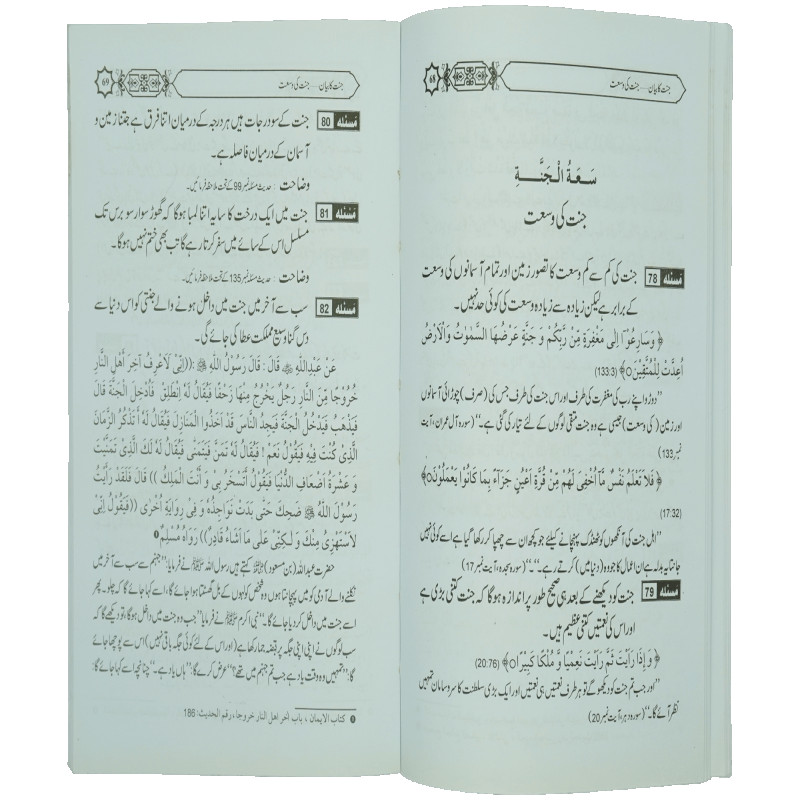 جنت کا بیان — جنت کی وسعت
68
سَعَةُ الْجَنَّةِ
جنت کی وسعت
مسئله 78 جنت کی کم سے کم وسعت کا تصور زمین اور تمام آسمانوں کی وسعت
کے برابر ہے لیکن زیادہ سے زیادہ وسعت کی کوئی حد نہیں۔
﴿ وَسَارِعُوْٓا اِلٰى مَغْفِرَةٍ مِّنْ رَّبِّكُمْ وَ جَنَّةٍ عَرْضُهَا السَّمٰوٰتُ وَالْاَرْضُ
اُعِدَّتْ لِلْمُتَّقِيْنَ﴾ (133:3)
”دوڑو اپنے رب کی مغفرت کی طرف اور اس جنت کی طرف جس کی (صرف) چوڑائی آسمانوں
اور زمین (کی وسعت) جیسی ہے وہ جنت متقی لوگوں کے لئے تیار کی گئی ہے۔“ (سورہ آل عمران، آیت
نمبر 133)
﴿فَلاَ تَعْلَمُ نَفْسٌ مَّآ اُخْفِىَ لَهُمْ مِّنْ قُرَّةِ اَعْيُنٍ جَزَآءً بِمَا كَانُوْا يَعْمَلُوْنَ﴾
(17:32)
”اہل جنت کی آنکھوں کو ٹھنڈک پہنچانے کیلئے جو کچھ ان سے چھپا کر رکھا گیا ہے اسے کوئی نہیں
جانتا یہ بدلہ ہے ان اعمال کا جو وہ (دنیا میں) کرتے رہے۔“ (سورہ سجدہ، آیت نمبر 17)
مسئله 79 جنت کو دیکھنے کے بعد ہی صحیح طور پر اندازہ ہوگا کہ جنت کتنی بڑی ہے
اور اس کی نعمتیں کتنی عظیم ہیں۔
﴿ وَاِذَا رَاَيْتَ ثَمَّ رَاَيْتَ نَعِيْمًا وَّ مُلْكًا كَبِيْرًا﴾ (20:76)
”اور جب تم جنت کو دیکھو گے تو ہر طرف نعمتیں ہی نعمتیں اور ایک بڑی سلطنت کا سرو سامان تمہیں
نظر آئے گا۔“ (سورہ دہر، آیت نمبر 20)
جنت کا بیان — جنت کی وسعت
69
مسئله 80 جنت کے سو درجات ہیں ہر درجہ کے درمیان اتنا فرق ہے جتنا زمین و
آسمان کے درمیان فاصلہ ہے۔
وضاحت : حدیث مسئلہ نمبر 99 کے تحت ملاحظہ فرمائیں۔
مسئله 81 جنت میں ایک درخت کا سایہ اتنا لمبا ہوگا کہ گھوڑ سوار سو برس تک
مسلسل اس کے سائے میں سفر کرتا رہے گا تب بھی ختم نہیں ہوگا۔
وضاحت : حدیث مسئلہ نمبر 135 کے تحت ملاحظہ فرمائیں۔
مسئله 82 سب سے آخر میں جنت میں داخل ہونے والے جنتی کو اس دنیا سے
دس گنا وسیع مملکت عطا کی جائے گی۔
عَنْ عَبْدِاللّٰهِ ﷺ قَالَ : قَالَ رَسُوْلُ اللّٰهِ ﷺ ((اِنِّىْ لَاَعْرِفُ آخِرَ أَهْلِ النَّارِ
خُرُوْجًا مِّنَ النَّارِ رَجُلٌ يَخْرُجُ مِنْهَا زَحْفًا فَيُقَالُ لَهُ اِنْطَلِقْ فَادْخُلِ الْجَنَّةَ قَالَ
فَيَذْهَبُ فَيَدْخُلُ الْجَنَّةَ فَيَجِدُ النَّاسَ قَدْ اَخَذُوا الْمَنَازِلَ فَيُقَالُ لَهُ أَتَذْكُرُ الزَّمَانَ
الَّذِىْ كُنْتَ فِيْهِ فَيَقُوْلُ نَعَمْ ! فَيُقَالُ لَهُ تَمَنَّ فَيَتَمَنّٰى فَيُقَالُ لَهُ لَكَ الَّذِىْ تَمَنَّيْتَ
وَ عَشْرَةَ اَضْعَافِ الدُّنْيَا فَيَقُوْلُ أَتَسْخَرُ بِىْ وَ أَنْتَ الْمَلِكُ )) قَالَ فَلَقَدْ رَأَيْتُ
رَسُوْلَ اللّٰهِ ﷺ ضَحِكَ حَتّٰى بَدَتْ نَوَاجِذُهُ وَ فِىْ رِوَايَةٍ اُخْرٰى ((فَيَقُوْلُ اِنِّىْ
لَاَسْتَهْزِئُ مِنْكَ وَ لٰكِنِّىْ عَلٰى مَا اَشَاءُ قَادِرٌ)) رَوَاهُ مُسْلِمٌ
حضرت عبداللہ (بن مسعود) کہتے ہیں رسول اللہ ﷺ نے فرمایا ”جہنم سے سب سے آخر میں
نکلنے والے آدمی کو میں پہچانتا ہوں وہ شخص کولہوں کے بل گھسٹتا ہوا جائے گا، اسے کہا جائے گا کہ چلو۔ پھر
اسے جنت میں داخل کر دیا جائے گا۔“ نبی اکرم ﷺ نے فرمایا ”جب وہ جنت میں داخل ہوگا، تو دیکھے گا کہ
سب لوگوں نے اپنی اپنی جگہ پر قبضہ جما رکھا ہے (اور اس کے لئے کوئی جگہ باقی نہیں) اس سے پوچھا جائے
گا: ”تمہیں وہ وقت یاد ہے جب تم جہنم میں تھے؟“ عرض کرے گا: ”ہاں یاد ہے۔“ چنانچہ اسے کہا جائے گا:
کتاب الایمان ، باب آخر اهل النار خروجا، رقم الحدیث: 186